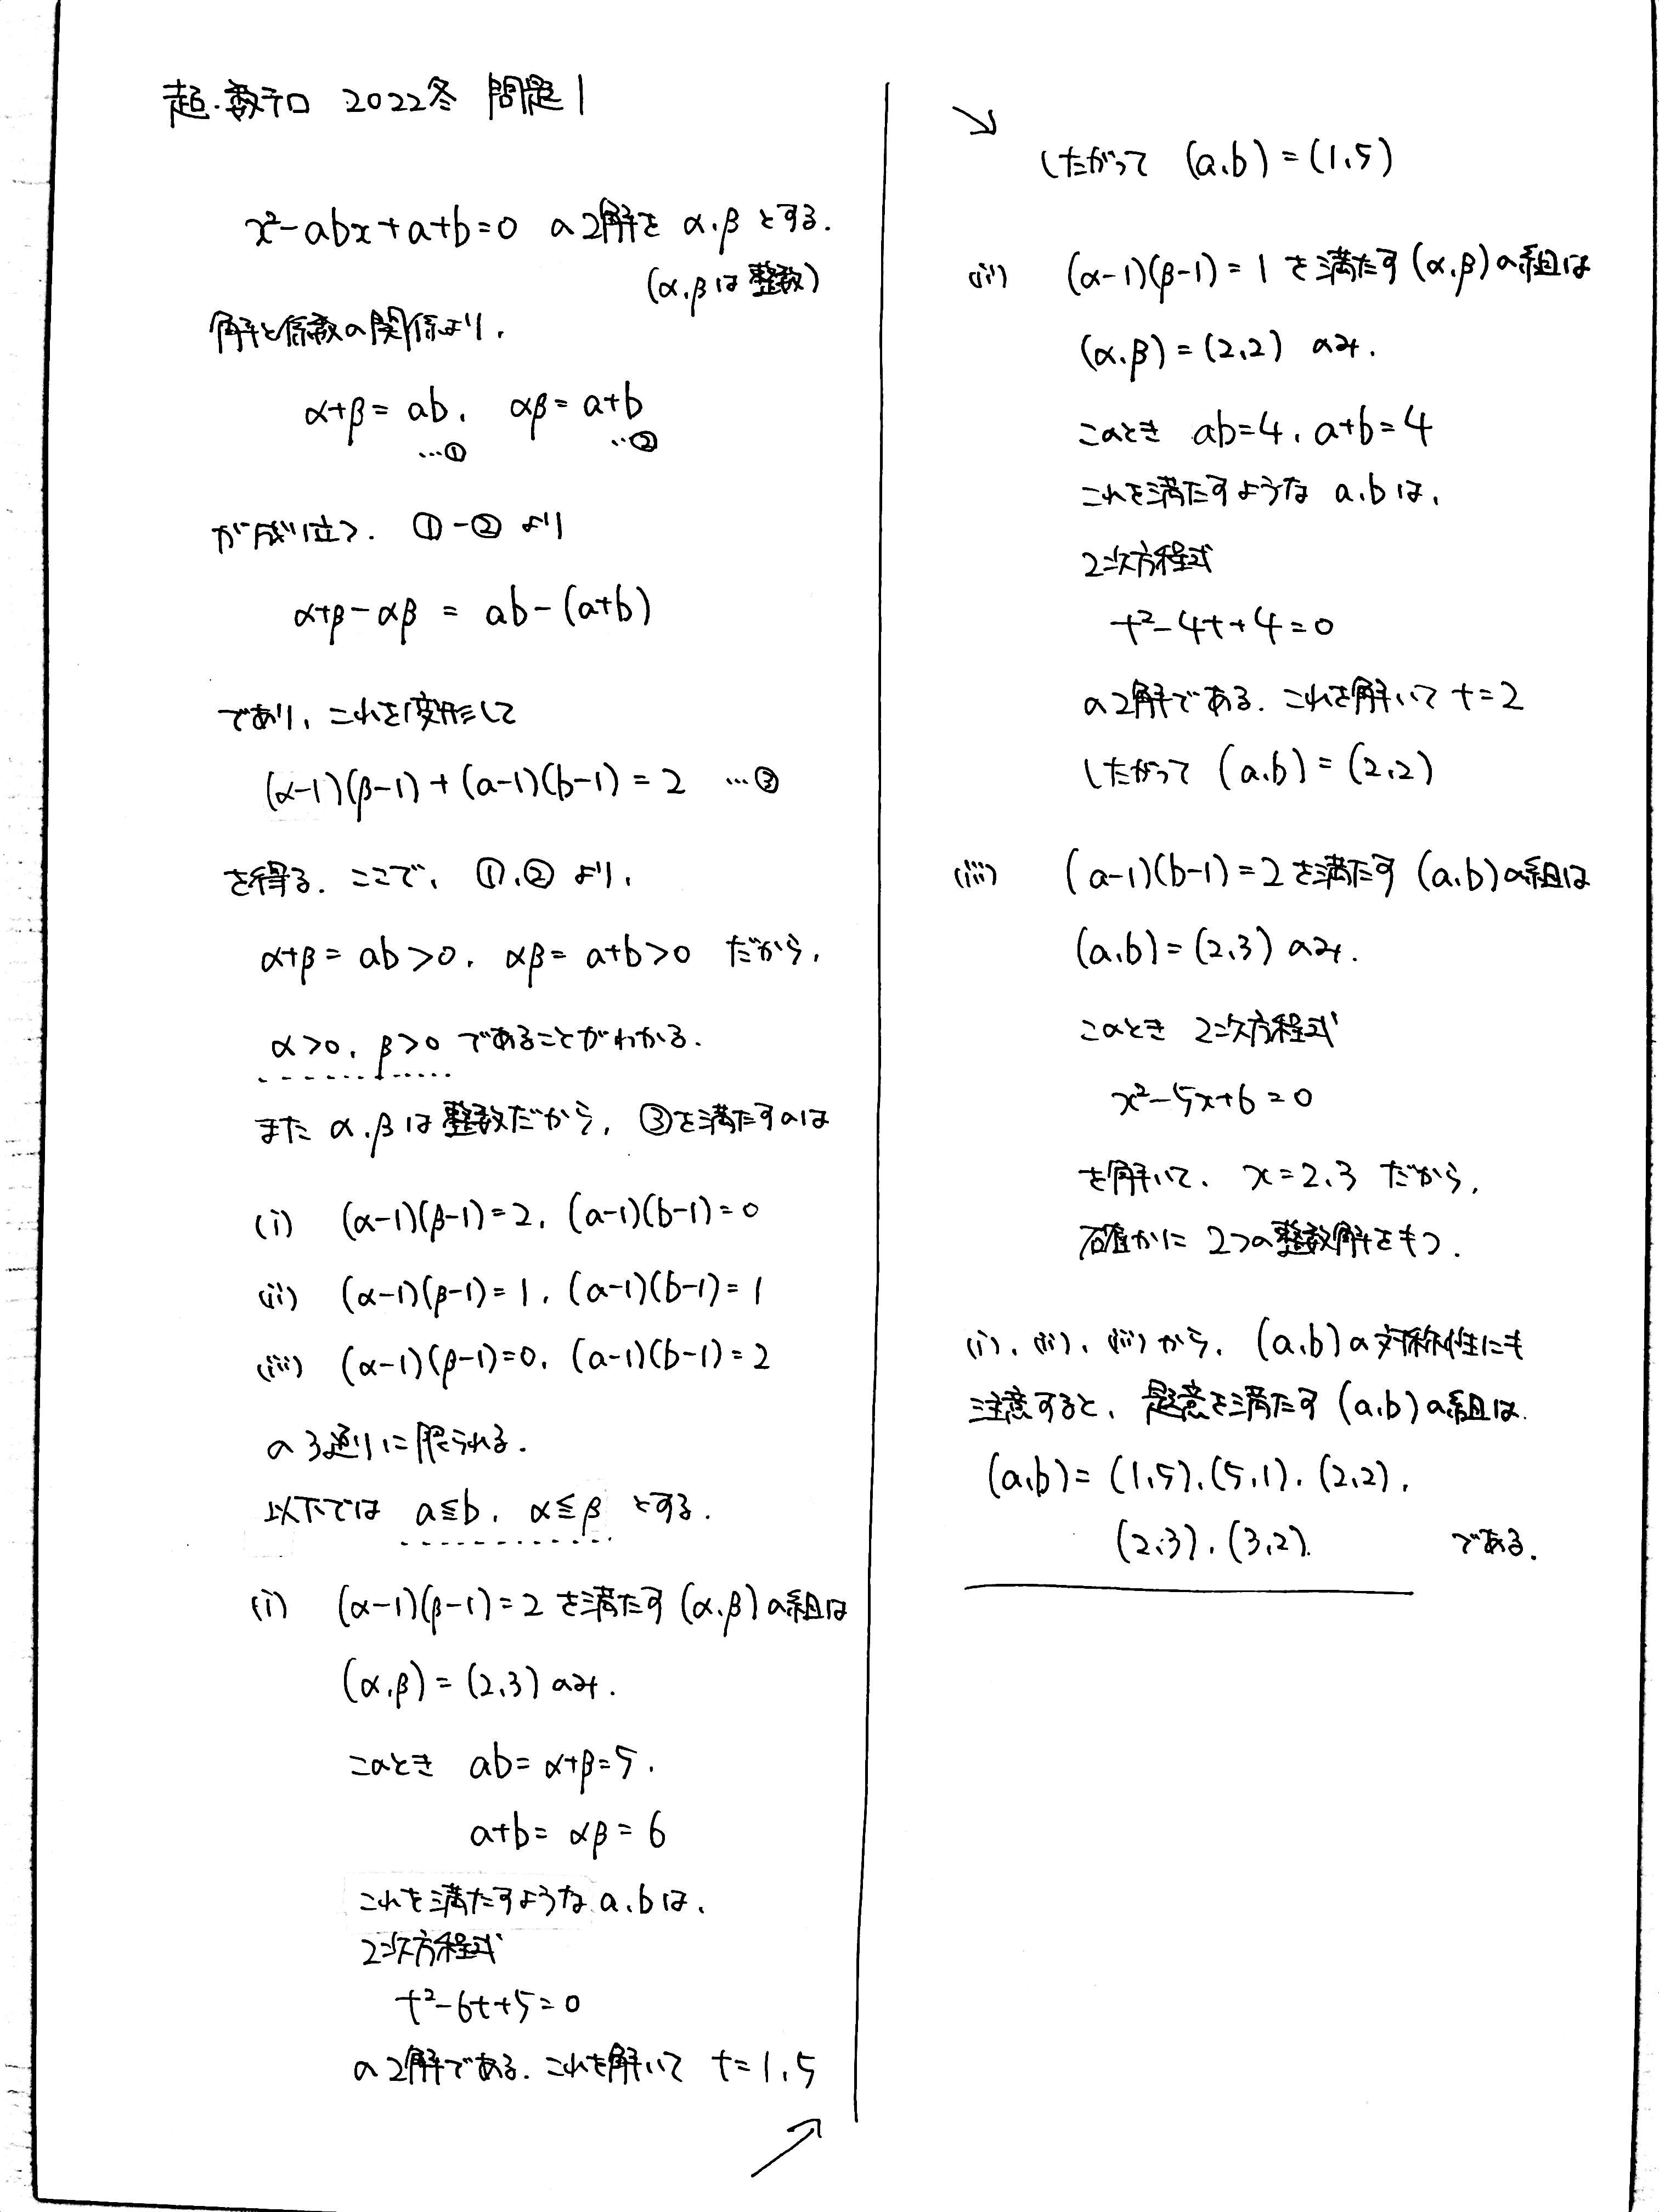 超・数テロ 2022冬 問題1
x²-abx+a+b=0 の2解を α,β とする.
(α,βは整数)
解と係数の関係より,
α+β=ab, αβ=a+b
…① …②
が成り立つ. ①-② より
α+β-αβ = ab-(a+b)
であり, これを変形して
(α-1)(β-1)+(a-1)(b-1)=2 …③
を得る. ここで, ①,② より,
α+β=ab>0, αβ=a+b>0 だから,
α>0, β>0 であることがわかる.
また α,βは整数だから, ③を満たすのは
(i) (α-1)(β-1)=2, (a-1)(b-1)=0
(ii) (α-1)(β-1)=1, (a-1)(b-1)=1
(iii) (α-1)(β-1)=0, (a-1)(b-1)=2
の3通りに限られる.
以下では a≦b, α≦β とする.
(i) (α-1)(β-1)=2 を満たす (α,β)の組は
(α,β)=(2,3) のみ.
このとき ab=α+β=5,
a+b=αβ=6
これを満たすような a,bは,
2次方程式
t²-6t+5=0
の2解である. これを解いて t=1,5
↗
↘
したがって (a,b)=(1,5)
(ii) (α-1)(β-1)=1 を満たす(α,β)の組は
(α,β)=(2,2) のみ.
このとき ab=4, a+b=4
これを満たすような a,bは,
2次方程式
t²-4t+4=0
の2解である. これを解いて t=2
したがって (a,b)=(2,2)
(iii) (a-1)(b-1)=2を満たす (a,b)の組は
(a,b)=(2,3) のみ.
このとき 2次方程式
x²-5x+6=0
を解いて, x=2,3 だから,
確かに 2つの整数解をもつ.
(i), (ii), (iii) から, (a,b)の対称性にも
注意すると, 題意を満たす (a,b)の組は.
(a,b)=(1,5),(5,1),(2,2),
(2,3),(3,2). である.